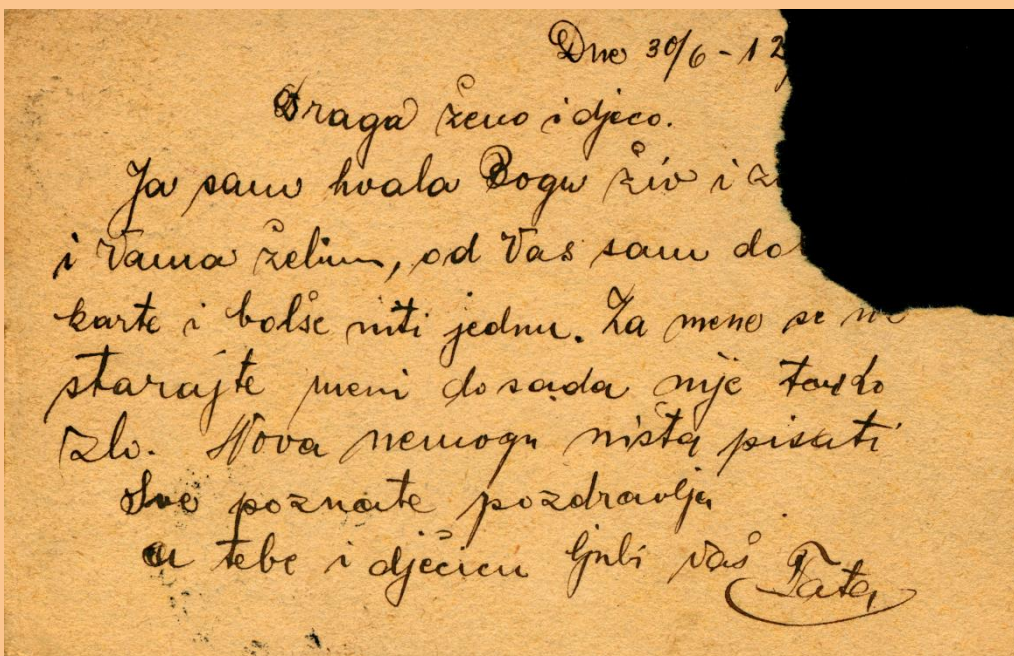 Dne 30/6 - 12
Draga ženo i djeco.
Ja sam hvala Bogu živ i z
i Vama želim, od Vas sam do
karte i bolše niti jednu. Za mene se ne
starajte meni do sada nije
zlo. Nova nemogu ništa pisati
Sve poznate pozdravlja
a tebe i dječicu ljubi vaš Tata